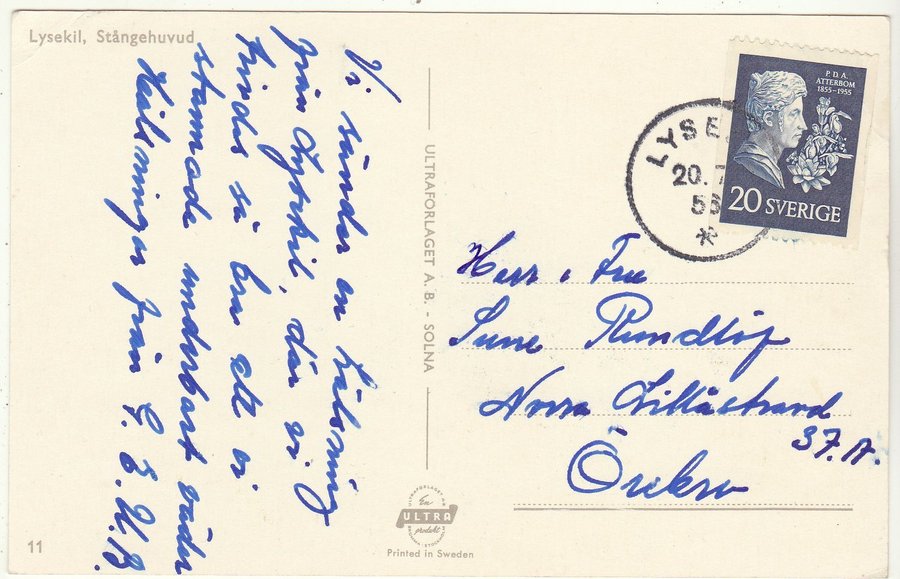 Lysekil, Stångehuvud
Vi sänder en hälsning
från Lysekil, där vi
trivdes så bra att vi
stannade underbart väder
Hälsningar från G. E. U. B.
ULTRAFORLAGET A. B. - SOLNA
P.D.A.
ATTERBOM
1855-1955
20 SVERIGE
LYSE
20.7
56
Herr o Fru
Sune Rundlöf
Norra Lillåstrand
37. A.
Örebro
En
ULTRA
produkt
Printed in Sweden
11